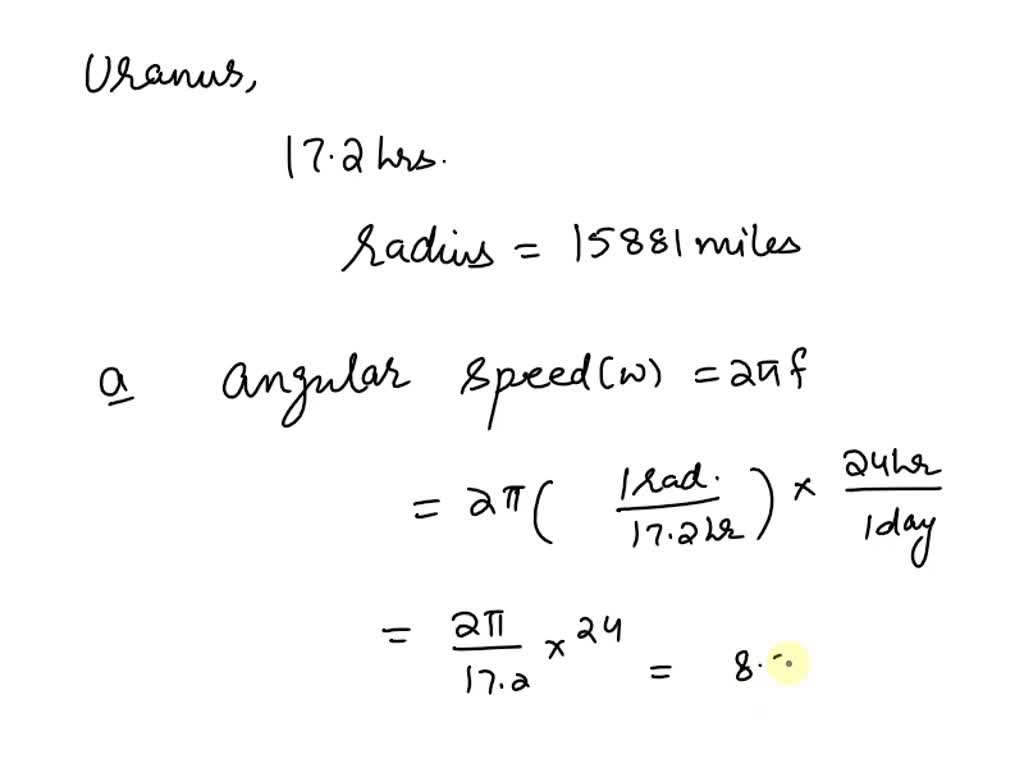 Uranus,
17.2 hrs.
radius = 15881 miles
a angular speed (w) = 2πf
= 2π ( 1 rad. / 17.2 hr ) × 24 hr / 1 day
= 2π / 17.2 × 24 = 8.